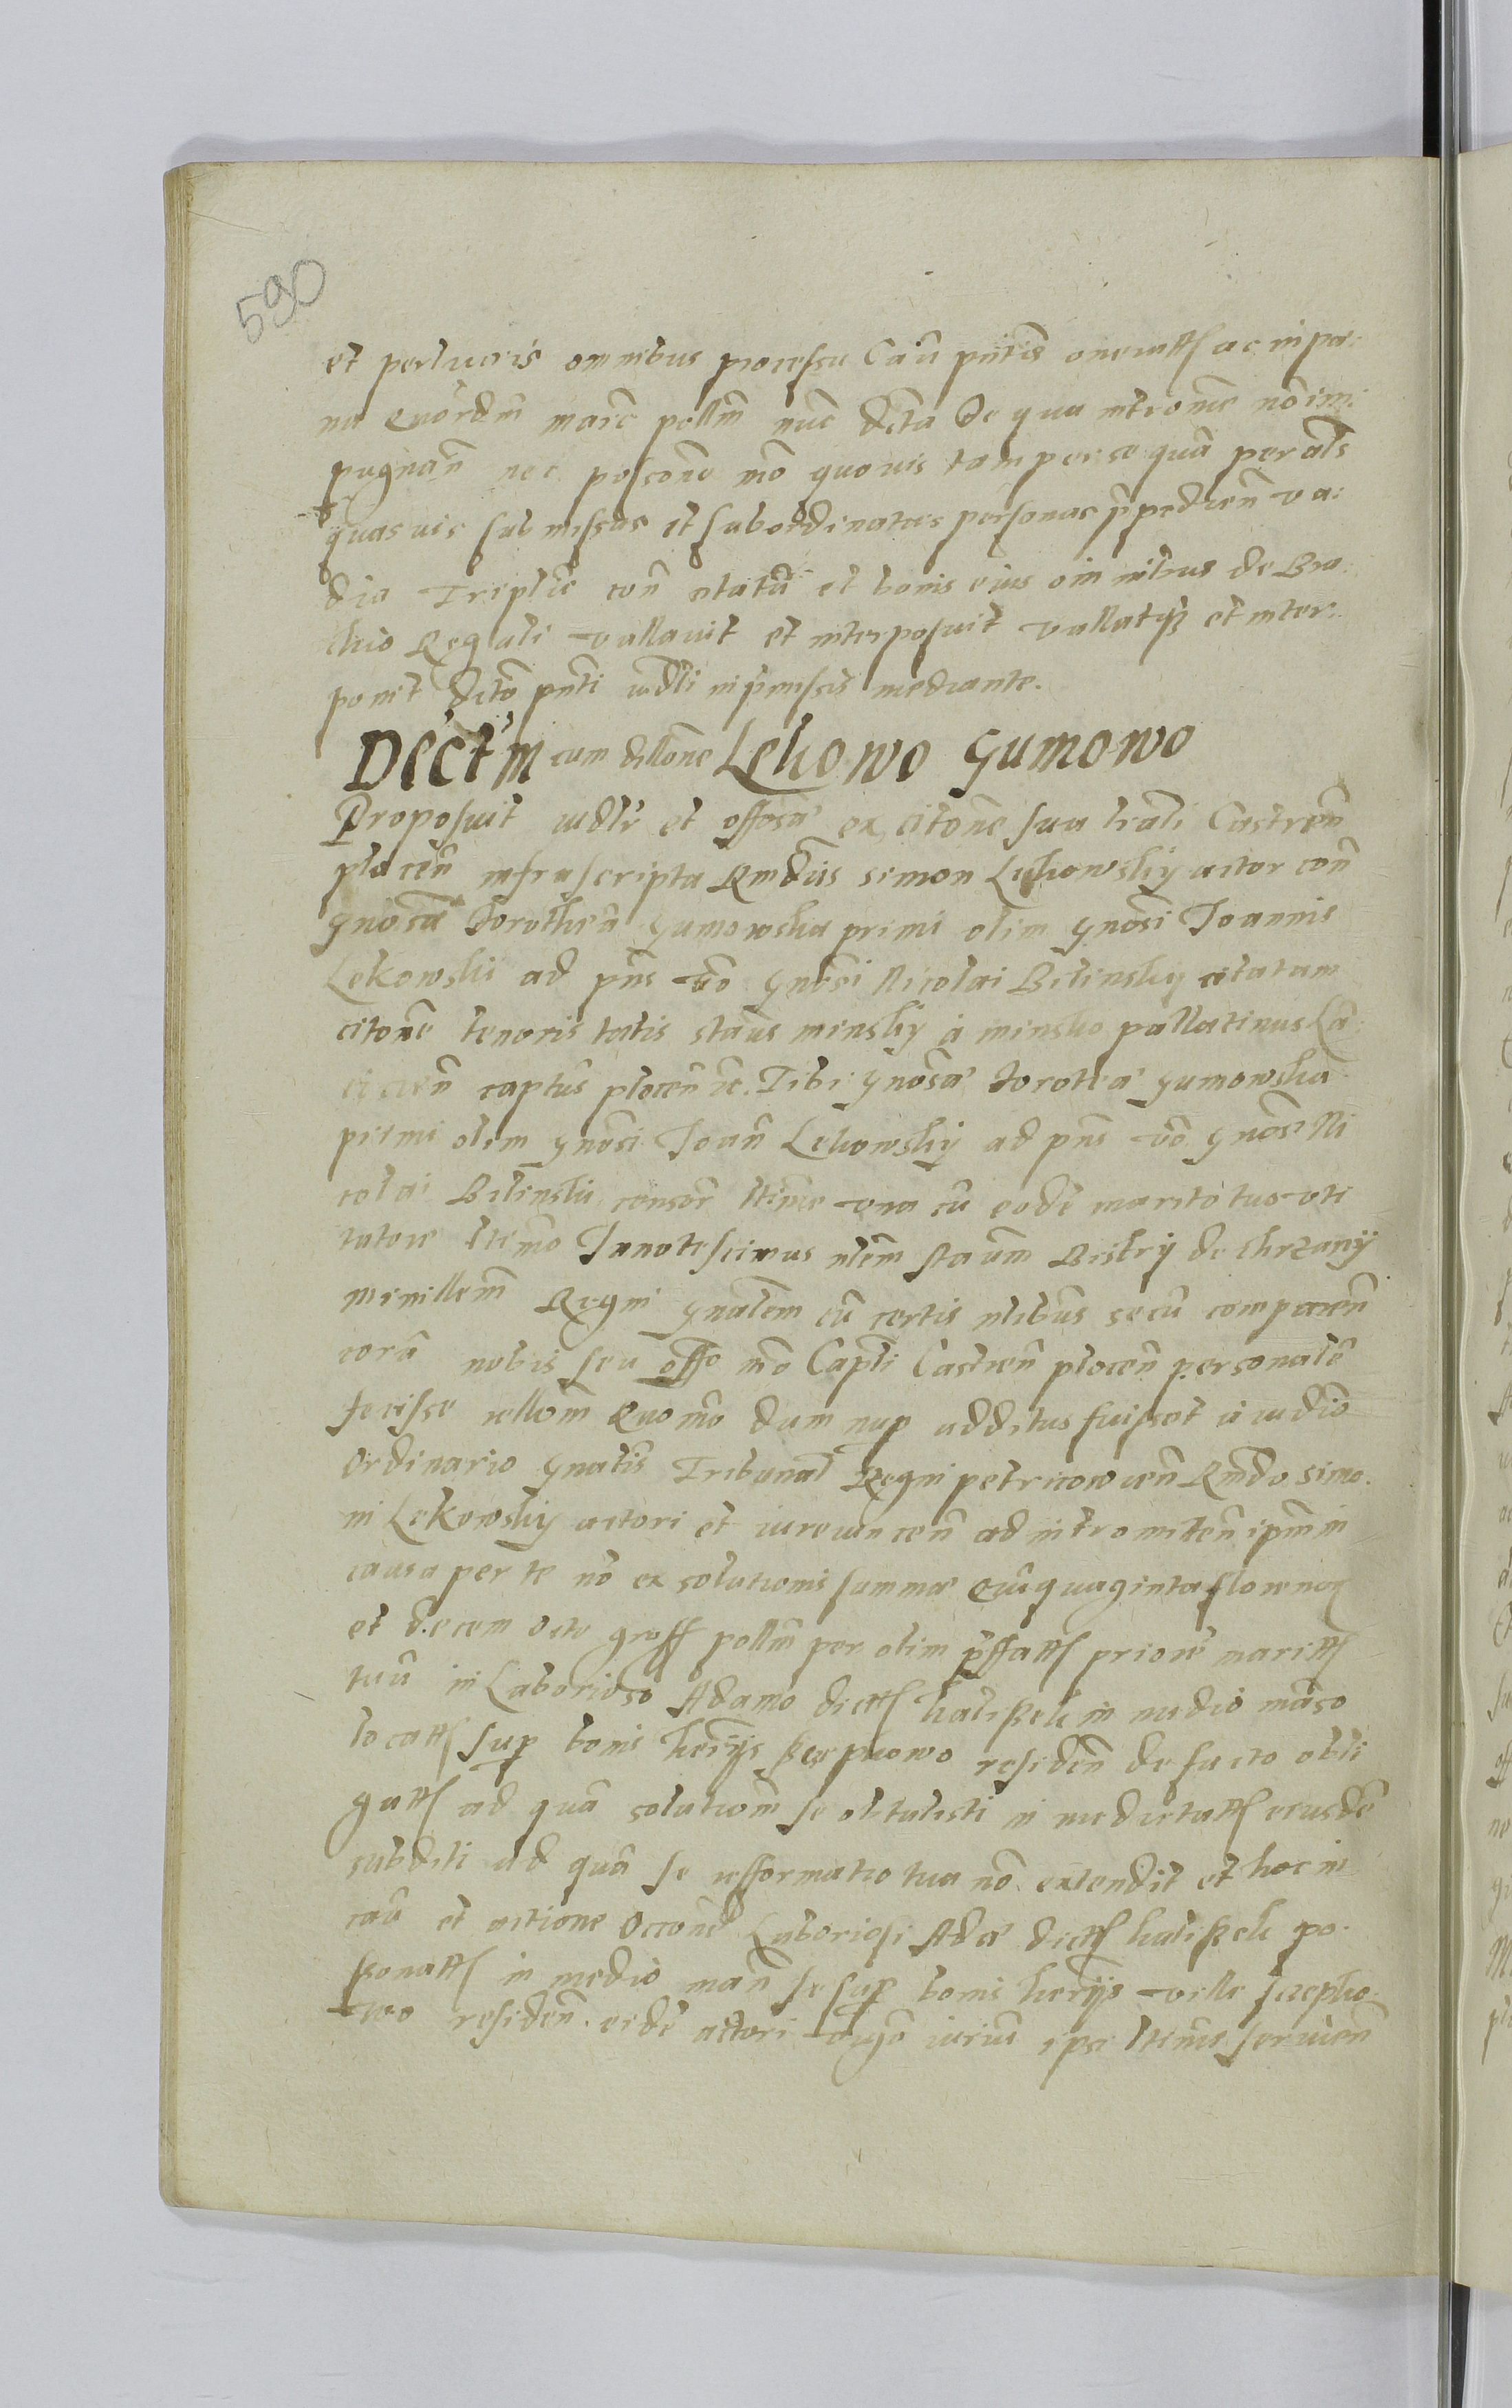 590
et perlucris omnibus processu Cau͂ pn̄tis oneratt͡s ac in pœ:
na quordm̄ marc̄ pollm̄ nūc dc̄ta De qua intromc̄ nō im:
pugnan̄ nec possone mō quovis tam per se quā per al͂s
quasvis submissas et subordinatas personas p̄pedien̄ va:
dio Triplic̄ con citatū et bonis eius oīmnibus de Bra
chio Regali vallavit et interposuit vallatqȝ et inter
ponit dc̄to pn̄ti iudi͂ in p̄missis mediante.
Dect'm cum dillone Lekowo Gumowo
Proposuit iudr͂ et offosa͂ ex citōne sua lrāli Castren̄
plocen̄ infrascripta Rmdūs Simon Lekowskij actor con̄
gnōsā Dorotheā Gumowska primi olim gnōsi Joannis
Lekowski ad pn̄s vō gnōsi Nicolai Bilinskij citatam
citōne tenoris talis Staūs Minskij á Minsko pallatinus Lā
cicien̄ captūs plocen̄ etc. Tibi gnōsā Dorotea Gumowska
primi olim gnōsi Joan̄ Lekowskij ad pn̄s vō gnōsi Ni
colai Bilinskii consor̄ ltīme una cū eodē marito tuo uti
tutore ltīmo Innotescimus nlēm Staūm Bistrij de Chrzanij
Minillem̄ Regni gnālem cū certis nlibūs secū comparen̄
corā nobis seu offo nr̄o Captl̄i Castren̄ plocen̄ personalē
fecisse rellōm Quomō dum nup additus fuisset á iudiō
Ordinario gnālis Tribunal̄ Regni petricowien̄ Rmdo Simo
ni Lekowskij actori et iurevincen̄ ad intromiten̄ ipm̄ in
causa per te nō exsolutionis summæ Quīquaginta floreno͡r
et decem octo gross pollm̄ per olim p̄ffatt͡s priore marit͡t
tuū in Laborioso Adamo dictt͡s haliszek in medio manso
locatt͡s sup bonis herijs Szczepkowo residen̄ de facto obli
gatt͡s ad quā solutiom̄ se obtulisti in medietatt͡s eiusdē
subditi ad quā se refformatio tua nō extendit et hoc in
caū et actione Occōne Laboriosi Adæ dictt͡s haliszek po
ssonatt͡s in medio man̄ se sup bonis herijs villæ Sczepko
wo residen̄ eidē actori vigō iuriū ipsi ltīme servien̄